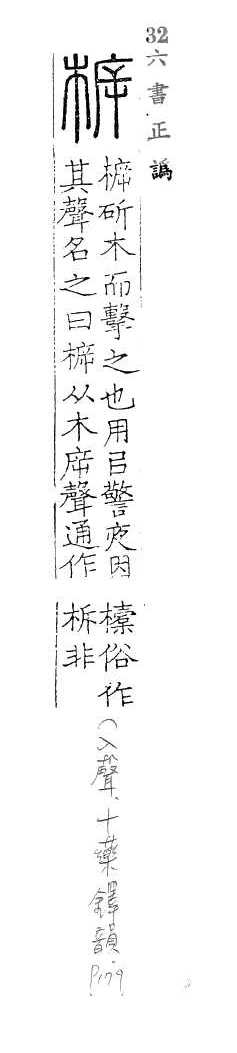 32六書正譌
㯓
㯓斫木而擊之也用㠯警夜因
其聲名之曰㯓从木㡿聲通作
欜俗作
柝非
(入聲、十藥鐸韻 P.179